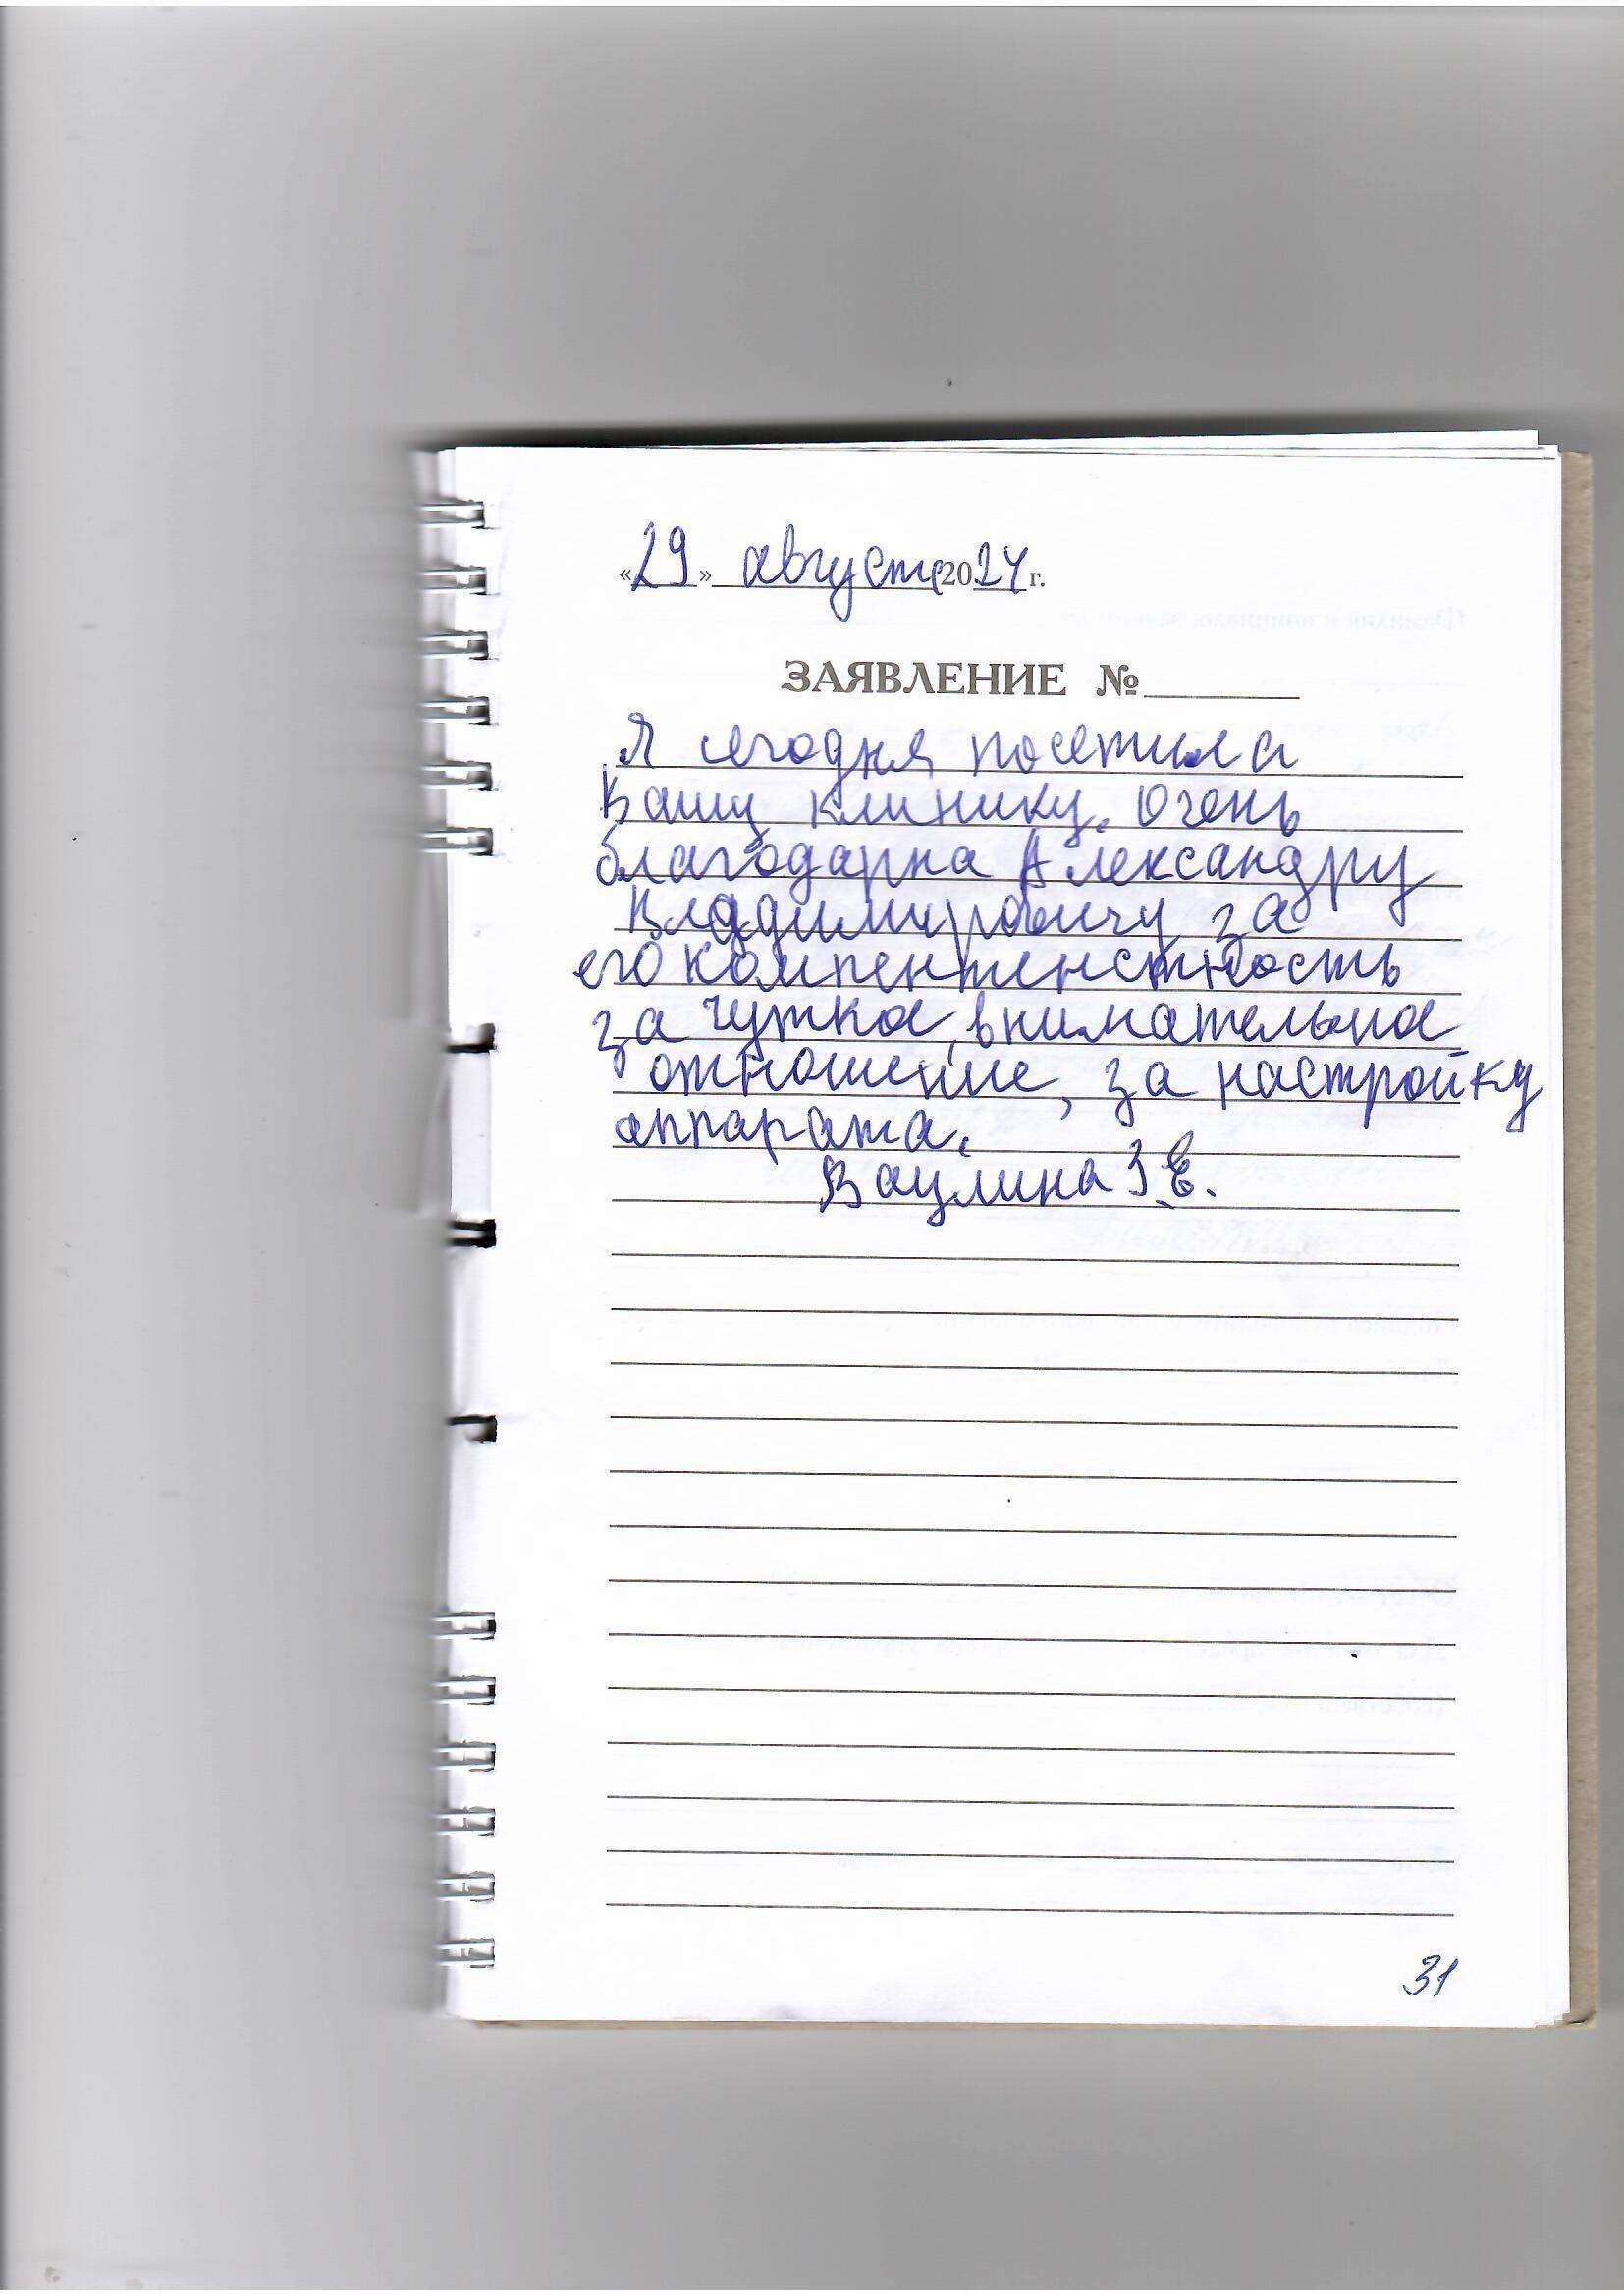 «29» августа 2024 г.
ЗАЯВЛЕНИЕ №
Я сегодня посетила
Вашу клинику. Очень
благодарна Александру
Владимировичу за
его компентенстность
за чуткое, внимательное
отношение, за настройку
аппарата.
Ваулина З.Е.
31